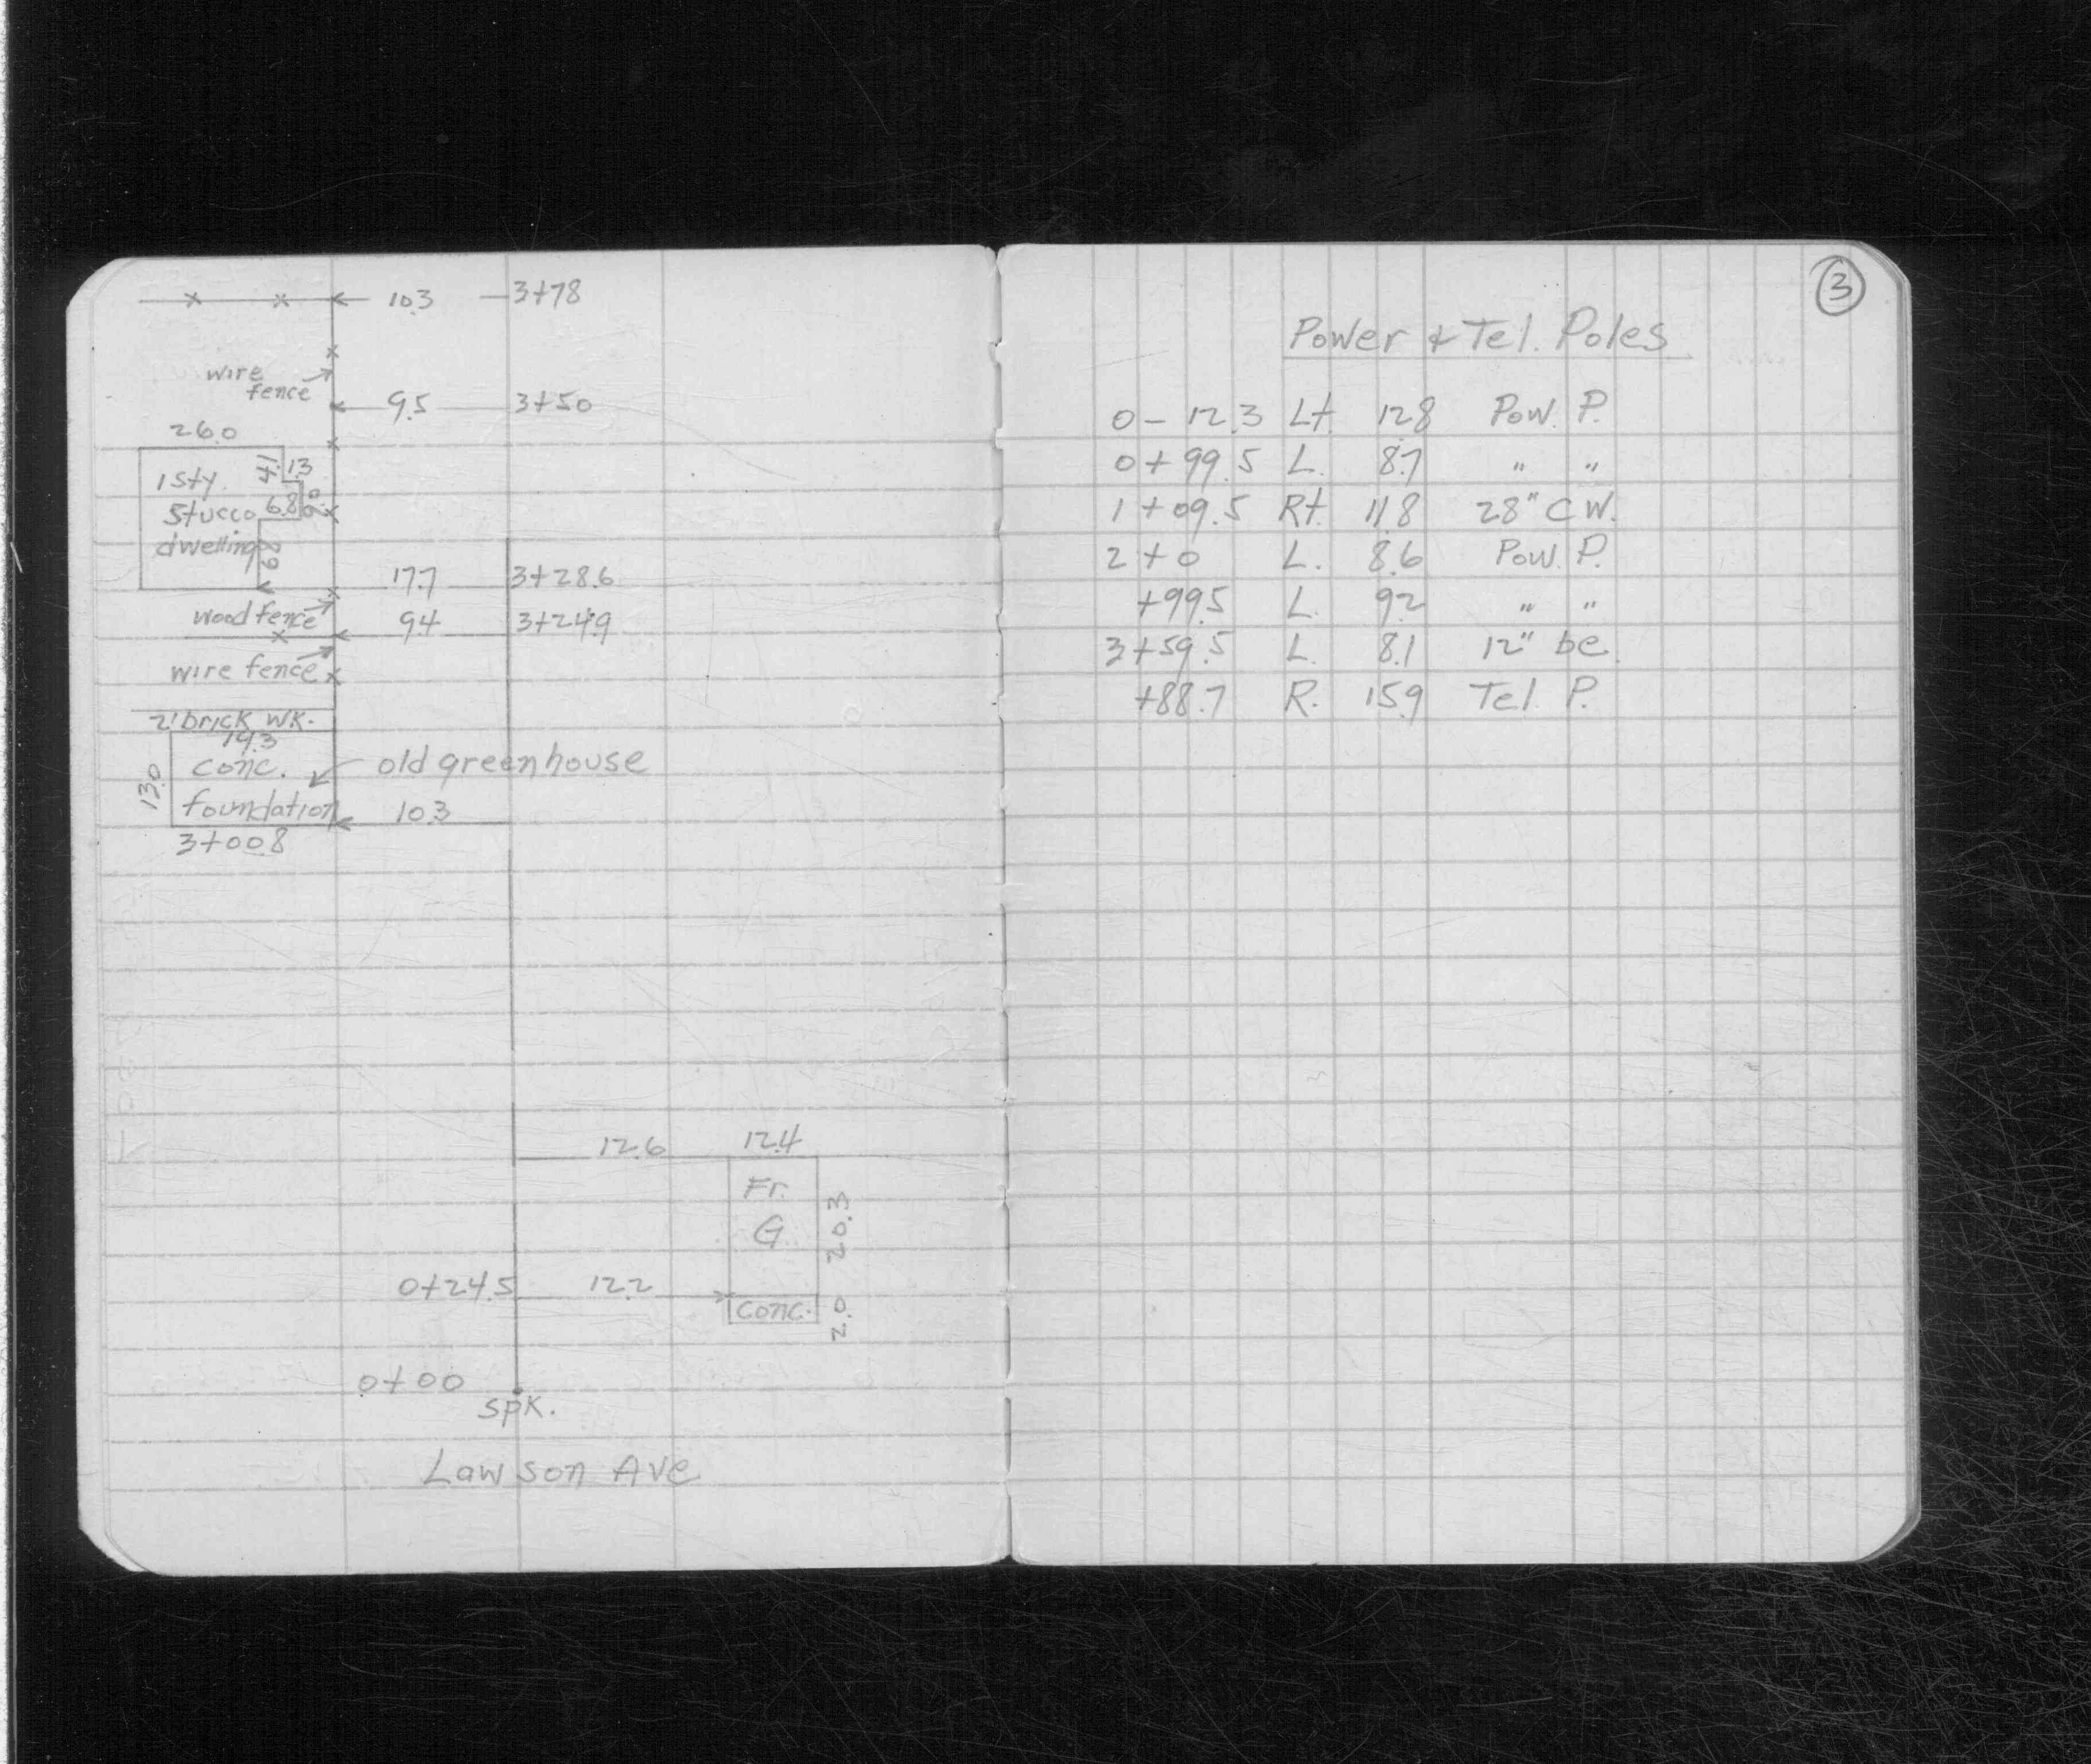 10.3 3+78
wire
fence
9.5 3+50
26.0
4.1 1.3
1 sty.
Stucco 6.8
dwelling
17.7 3+28.6
wood fence
9.4 3+24.9
wire fence
2' brick wk.
19.3
conc.
13.0
old greenhouse
foundation
10.3
3+00.8
12.6 12.4
Fr.
G
20.3
0+24.5 12.2
conc.
2.0
0+00
spk.
Lawson Ave
3
Power & Tel. Poles
0- 12.3 Lt. 12.8 Pow. P.
0+99.5 L. 8.7 " "
1+09.5 Rt. 11.8 28" C W.
2+0 L. 8.6 Pow. P.
+99.5 L. 9.2 " "
3+59.5 L. 8.1 12" be.
+88.7 R. 15.9 Tel. P.